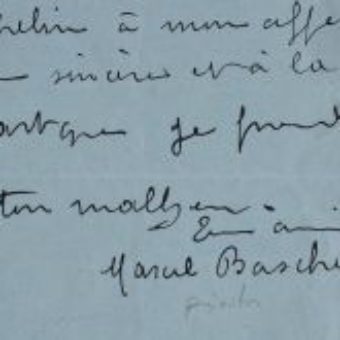 à mon affe
sincère et à la
part que je prend
ton malheur.
En ami
Marcel Basche